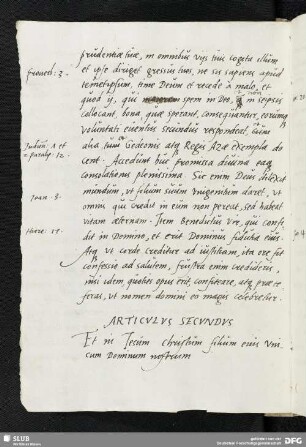 prudentiae tuae, in omnibus vijs tuis cogita illum
prouerb: 3.
et ipse diriget gressus tuos, ne sis sapiens apud
temetipsum, time Deum et recede à malo, et
quod ij, qui spem in Deo, non in seipsis
collocant, bona, quae sperant, consequantur, eorumq
voluntati euentus secundus respondeat, cum
Iudicum 7 et
2 paralip: 12.
alia tum Gedeonis atq Regis Aza exempla do
cent. Accedunt huc promissa diuina eaq
consolationis plenissima. Sic enim Deus dilexit
mundum, vt filium suum vnigenitum daret, vt
Ioan. 3.
omnis qui credit in eum non pereat, sed habeat
vitam aeternam. Item benedictus vir, qui confi
Hiere. 17.
dit in Domino, et erit Dominus fiducia eius.
Atq vt corde creditur ad iustitiam, ita ore fit
confessio ad salutem, frustra enim credideris,
nisi idem, quoties opus erit, confiteare, atq prae te
feras, vt nomen domini eo magis celebretur.
ARTICVLVS SECVNDVS
Et in Iesum Christum filium eius vni
cum Dominum nostrum
SLUB
Wir führen Wissen.
DFG